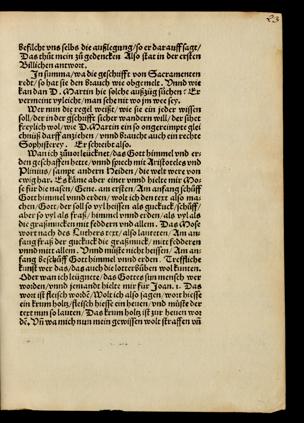 23
Befilcht vns selbs die außlegung/so er darauff sagt/
Das thüt mein zů gedencken Also stat in der ersten
Billichen antwort.
In summa/wa die geschrifft von Sacramenten
redt/so hat sie den brauch wie obgemelt. Vnnd wie
kan dan D. Martin hie solche außzüg sůchen? Er
vermeint vyleicht/man sehe nit wo jm wee sey.
Wer nun die regel weißt/wie sie ein jeder wissen
soll/der in der gschrifft sicher wandern will/der sihet
freylich wol/wie D. Martin ein so ongereimpte glei
chnüß darff anziehen/vnnd brauch ein rechte
Sophisterey. Er schreibt also.
Wan ich zůuor leücknet/das Gott himmel vnd er-
den geschaffen hette/vnd sprech mit Aristoteles vnd
Plinius/sampt andern Heiden/die welt were von
ewig har. Es käme aber einer vnnd hielte mir Mo-
se für die nasen/Gene. am ersten/Am anfang schůff
Gott himmel vnnd erden/wolt ich den text also ma
chen/Gott/der soll so vyl heissen als guckuck/schůff/
aber so vyl als fraß/himmel vnnd erden/als vyl als
die graßmucken mit feddern vnd allem. Das Mose
wort nach des Luthers text/also lauteten/Am an-
fang fraß der guckuck die graßmuck/mit feddern
vnnd mitt allem. Vnnd müste nicht heissen/Am an-
fang beschůff Gott himmel vnd erden. Treffliche
kunst wer das/das auch die lotterbůben wol kunten.
Oder wan ich leügnete/das Gottes sun mensch wer
worden/vnnd jemandt hielte mir für Joan. 1. Das
wort ist fleisch wordẽ/Wolt ich also sagen/wort hiesse
ein krum holtz/fleisch hiesse ein heuen/vnd müste der
text nun so lauten/Das krum holtz ist zur heuen wor
dẽ. Vñ wa mich nun mein gewissen wolt straffen vñ